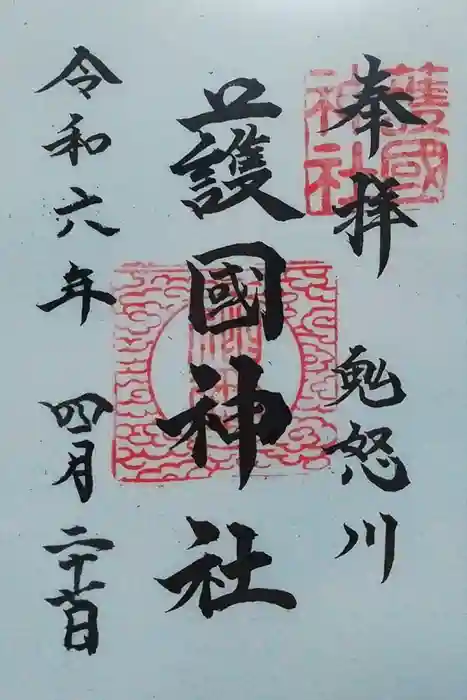 護國神社
奉拝 鬼怒川
護國神社
令和六年 四月二十六日